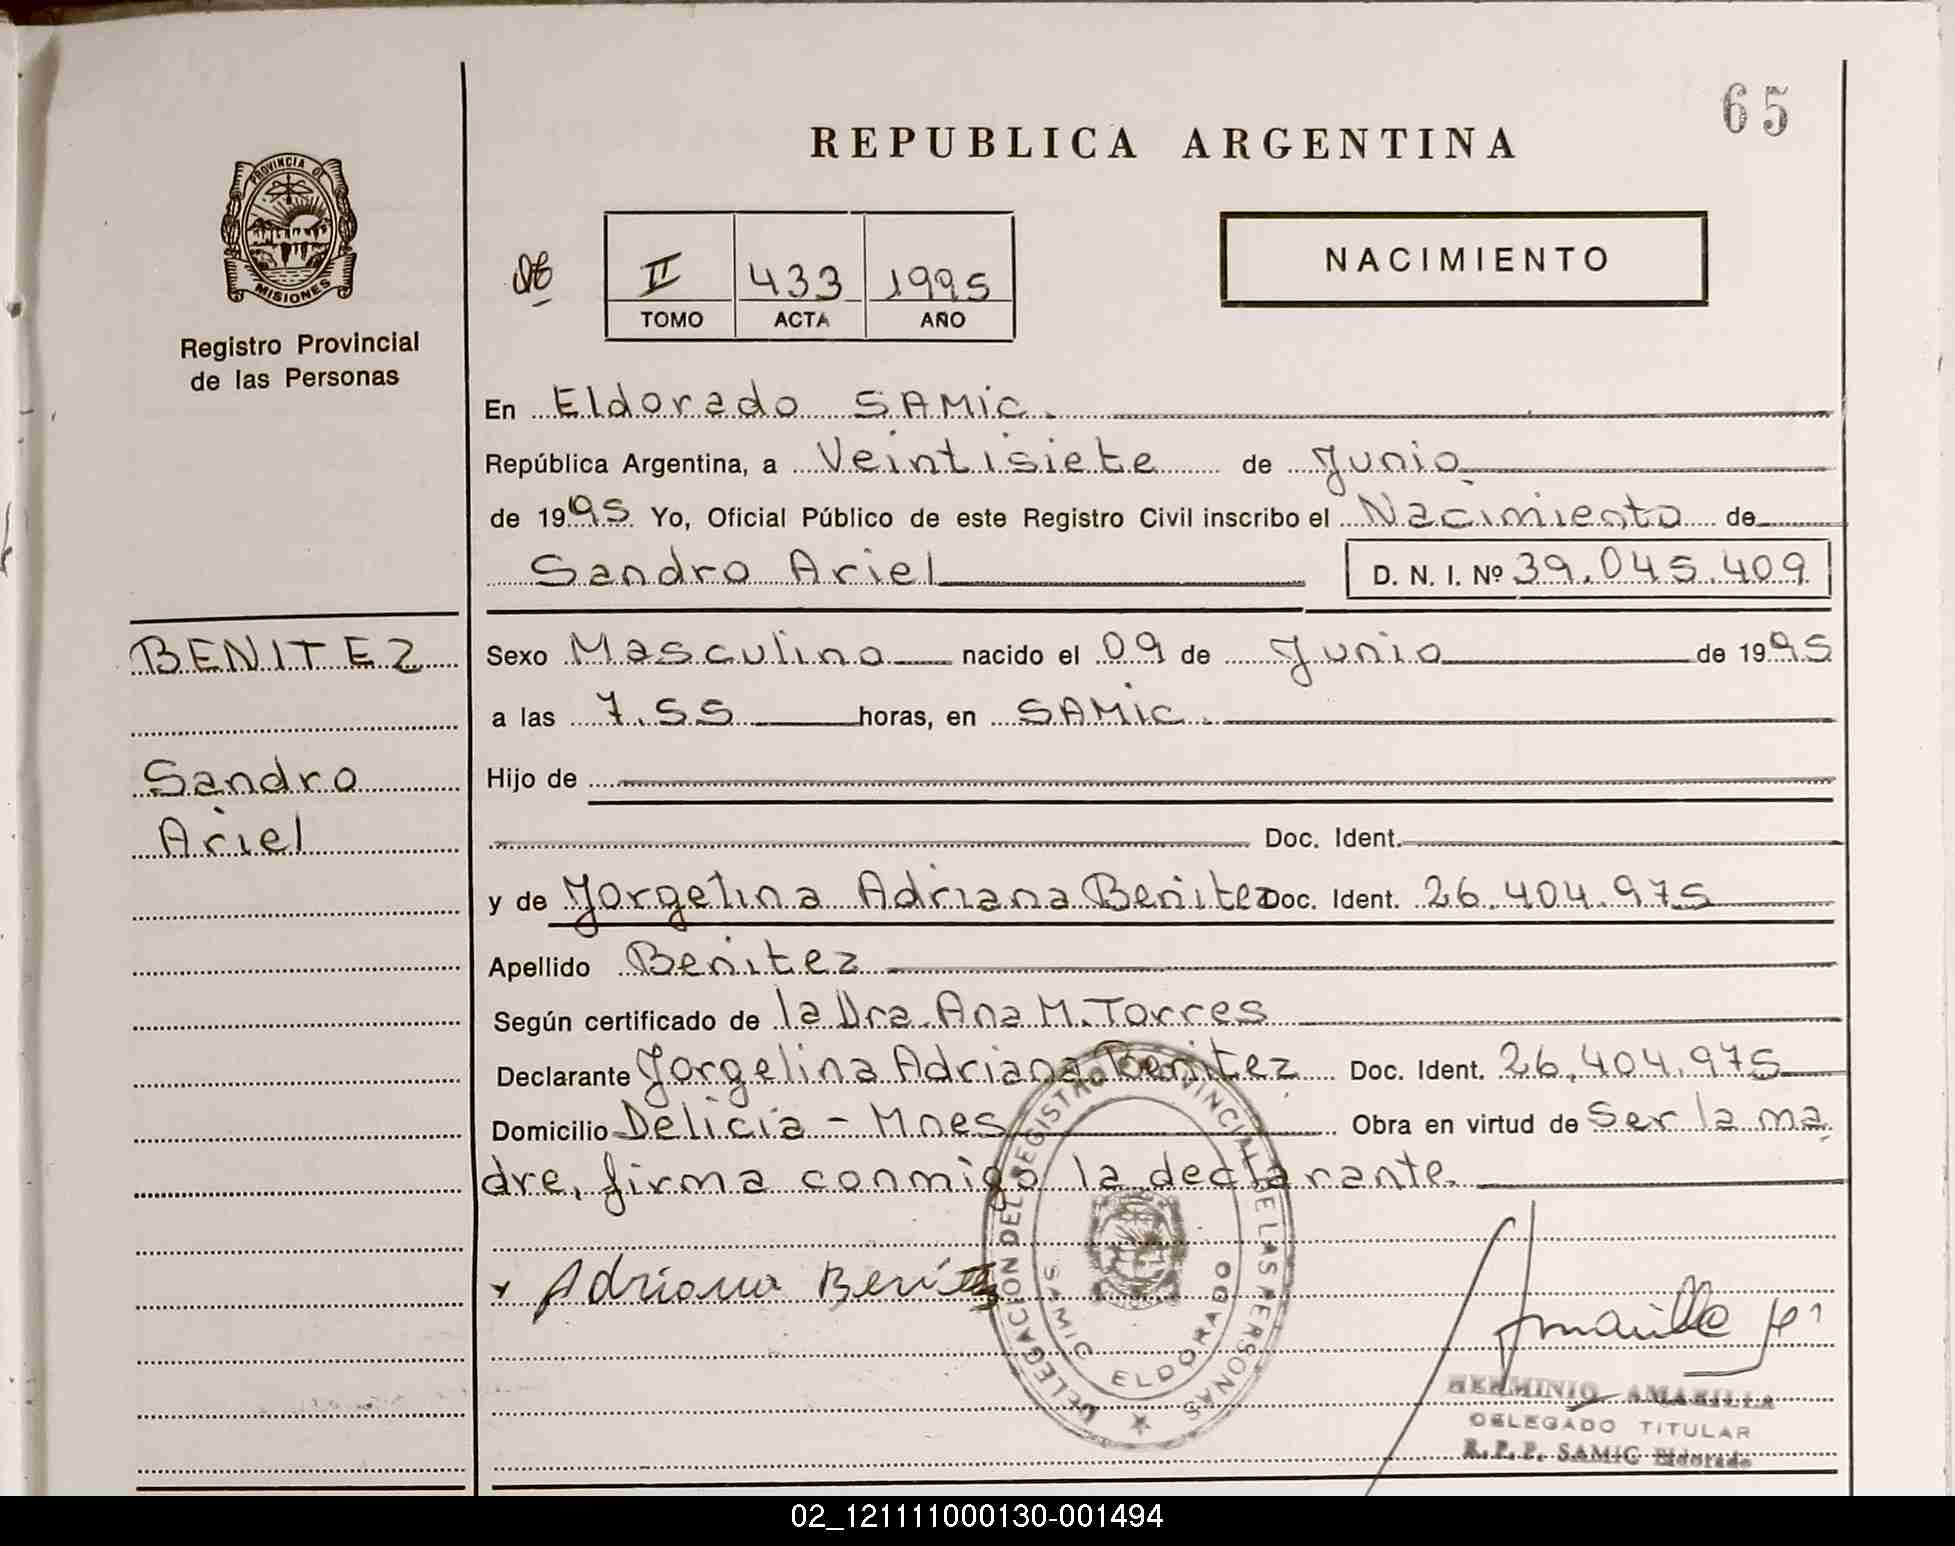 65
REPUBLICA ARGENTINA
PROVINCIA D
MISIONES
Registro Provincial
de las Personas
II 433 1995
TOMO ACTA AÑO
NACIMIENTO
En Eldorado SAMic.
República Argentina, a Veintisiete de Junio
de 1995 Yo, Oficial Público de este Registro Civil inscribo el Nacimiento de
Sandro Ariel D. N. I. Nº 39.045.409
BENITEZ
Sandro
Ariel
Sexo Masculino nacido el 09 de Junio de 1995
a las 7.55 horas, en SAMic.
Hijo de
Doc. Ident.
y de Jorgelina Adriana Benitez Doc. Ident. 26.404.975
Apellido Benitez
Según certificado de la Dra. Ana M. Torres
Declarante Jorgelina Adriana Benitez Doc. Ident. 26.404.975
Domicilio Delicia - Mnes Obra en virtud de Ser la ma
dre, firma conmigo la declarante.
x Adriana Benitez
DELEGACION DEL REGISTRO PROVINCIAL DE LAS PERSONAS
SAMIC ELDORADO
HERMINIO AMARILLA
DELEGADO TITULAR
R. P. P. SAMIC Eldorado
02_121111000130-001494